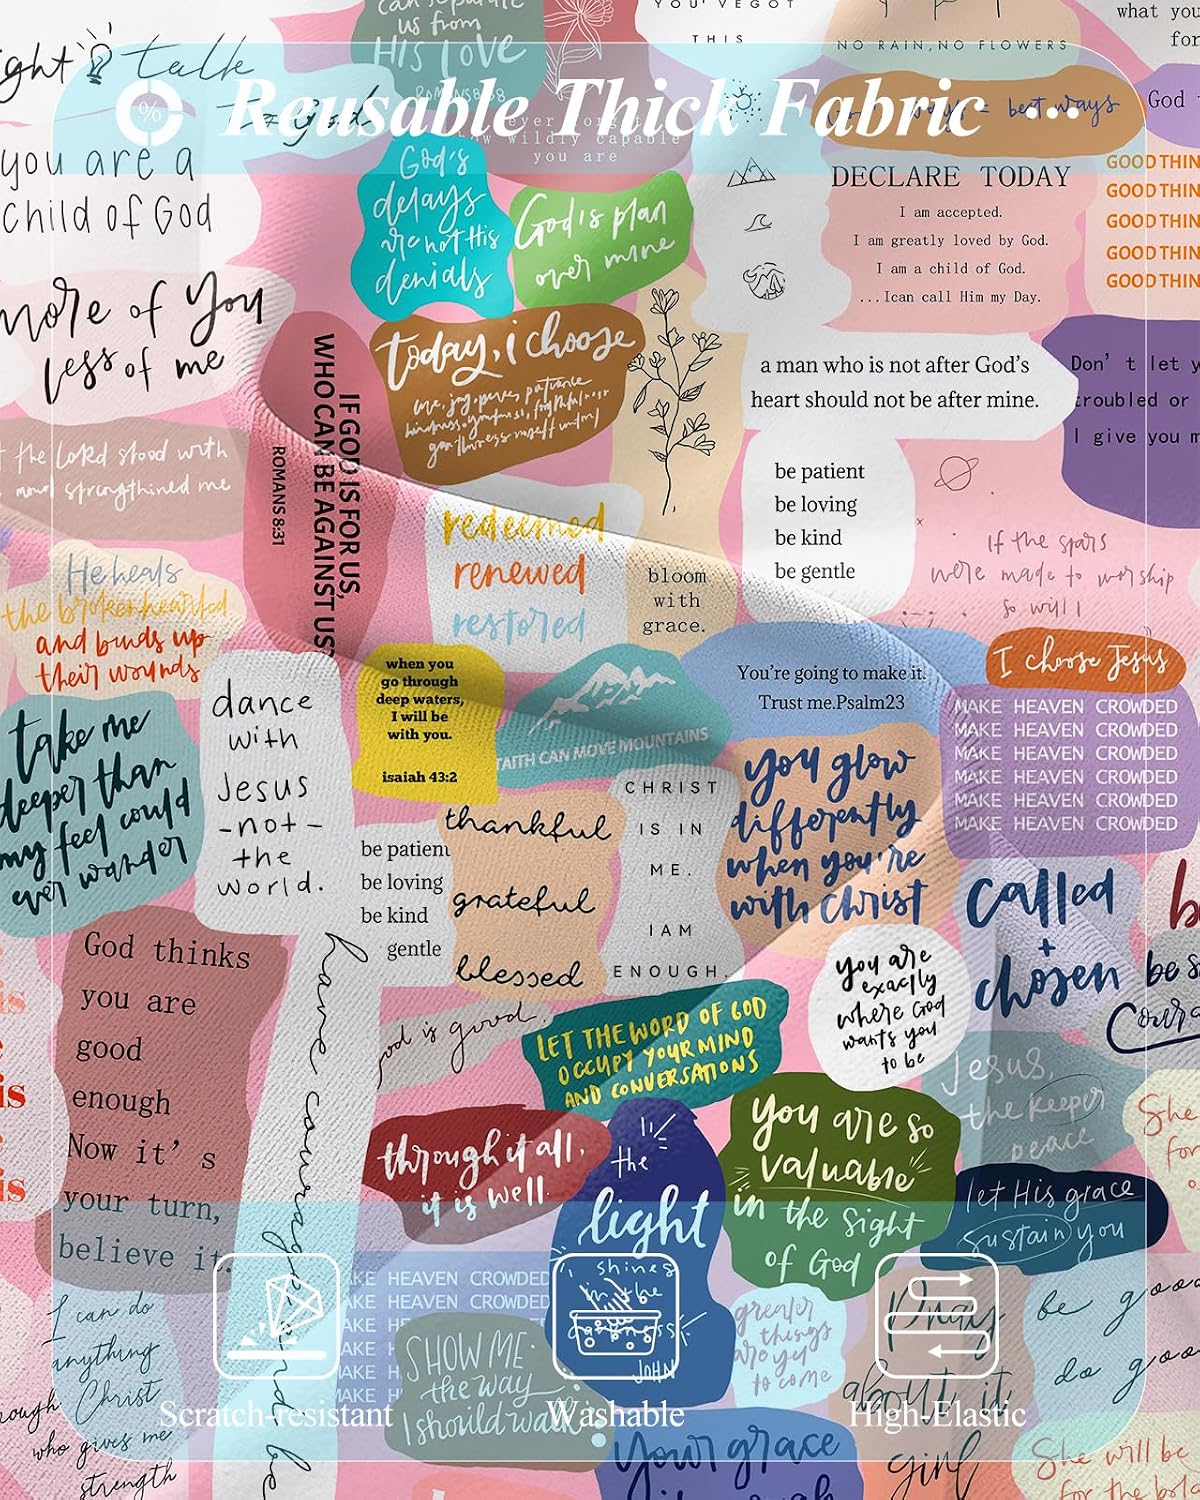 can separate
us from
HIS LOVE
ROMANS 8:38
YOU'VE GOT
THIS
NO RAIN, NO FLOWERS
what you
for
light talk
to god
Reusable Thick Fabric
never forget
how wildly capable
you are
ways = best ways
God
you are a
child of God
God's
delays
are not His
denials
God's plan
over mine
DECLARE TODAY
I am accepted.
I am greatly loved by God.
I am a child of God.
...Ican call Him my Day.
GOOD THIN
GOOD THIN
GOOD THIN
GOOD THIN
GOOD THIN
more of you
less of me
today, i choose
love, joy, peace, patience
a man who is not after God's
heart should not be after mine.
Don't let y
troubled or
I give you m
IF GOD IS FOR US,
WHO CAN BE AGAINST US?
ROMANS 8:31
the LORD stood with
and strengthined me
be patient
be loving
be kind
be gentle
If the stars
were made to worship
so will I
redeemed
renewed
restored
bloom
with
grace.
He heals
the brokenhearted
and binds up
their wounds
when you
go through
deep waters,
I will be
with you.
isaiah 43:2
FAITH CAN MOVE MOUNTAINS
You're going to make it.
Trust me.Psalm23
I choose Jesus
MAKE HEAVEN CROWDED
MAKE HEAVEN CROWDED
MAKE HEAVEN CROWDED
MAKE HEAVEN CROWDED
MAKE HEAVEN CROWDED
MAKE HEAVEN CROWDED
take me
deeper than
my feet could
ever wander
dance
with
Jesus
-not-
the
world.
be patient
be loving
be kind
gentle
thankful
grateful
blessed
CHRIST
IS IN
ME.
IAM
ENOUGH.
you glow
differently
when you're
with christ
called
+
chosen
be s
Coura
you are
exactly
where God
wants you
to be
God thinks
you are
good
enough
Now it's
your turn,
believe it.
have courage and be
God is good.
LET THE WORD OF GOD
OCCUPY YOUR MIND
AND CONVERSATIONS
Jesus,
the keeper
peace
She
for
through it all,
it is well.
the
light
shines
in the
darkness
JOHN
you are so
valuable
in the sight
of God
let His grace
sustain you
I can do
anything
Christ
who gives me
strength
AKE HEAVEN CROWDED
AKE HEAVEN CROWDED
SHOW ME
the way
I should walk
greater
things
are yet
to come
pray
about it
girl
be good
do good
Scratch-resistant
Washable
High-Elastic
Your grace
She will be
for the